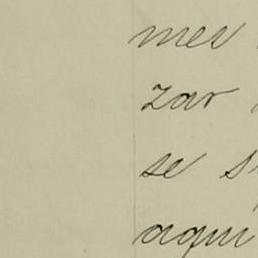 mer
zar
se s
aqui